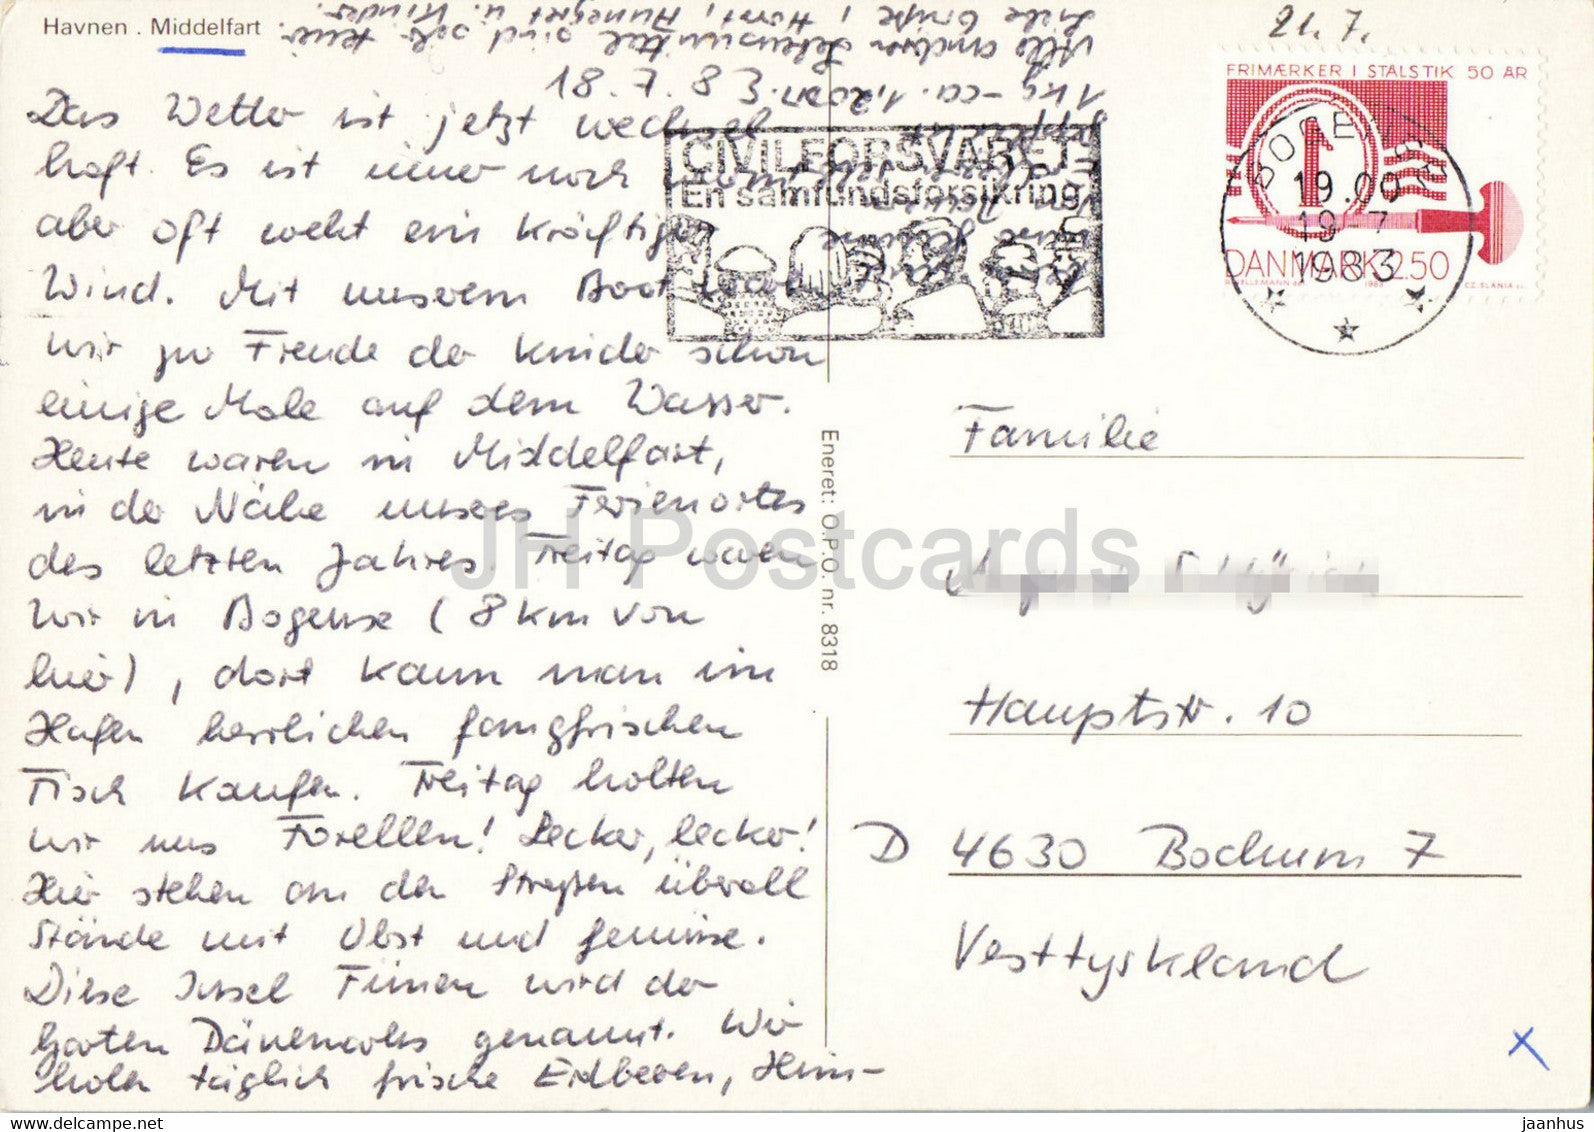 Havnen . Middelfart
21. 7.
18. 7. 83.
Das Wetter ist jetzt wechsel
haft. Es ist immer noch warm
aber oft weht ein kräftiger
Wind. Mit unserem Boot waren
wir zur Freude der Kinder schon
einige Male auf dem Wasser.
Heute waren in Middelfart,
in der Nähe unseres Ferienortes
des letzten Jahres. Freitag waren
wir in Bogense (8 km von
hier), dort kann man im
Hafen herrlichen fangfrischen
Fisch kaufen. Freitag holten
wir uns Forellen! Lecker, lecker!
Hier stehen an den Straßen überall
Stände mit Obst und Gemüse.
Diese Insel Fünen wird der
Garten Dänemarks genannt. Wir
holen täglich frische Erdbeeren, Him-
1 kg - ca. 1,20 DM.
Alle anderen Lebensmittel sind sehr teuer.
Liebe Grüße, Horst, Hannegret u. Kinder.
CIVILFORSVARET
En samfundsforsikring
FRIMÆRKER I STÅLSTIK 50 ÅR
DANMARK 2.50
1983
CZ. SLANIA sc.
BOGENSE
19.00
19-7
1983
Eneret: O.P.O. nr. 8318
Familie
Hauptstr. 10
D 4630 Bochum 7
Vesttyskland
X
JH Postcards
https://www.delcampe.net
jaanhus